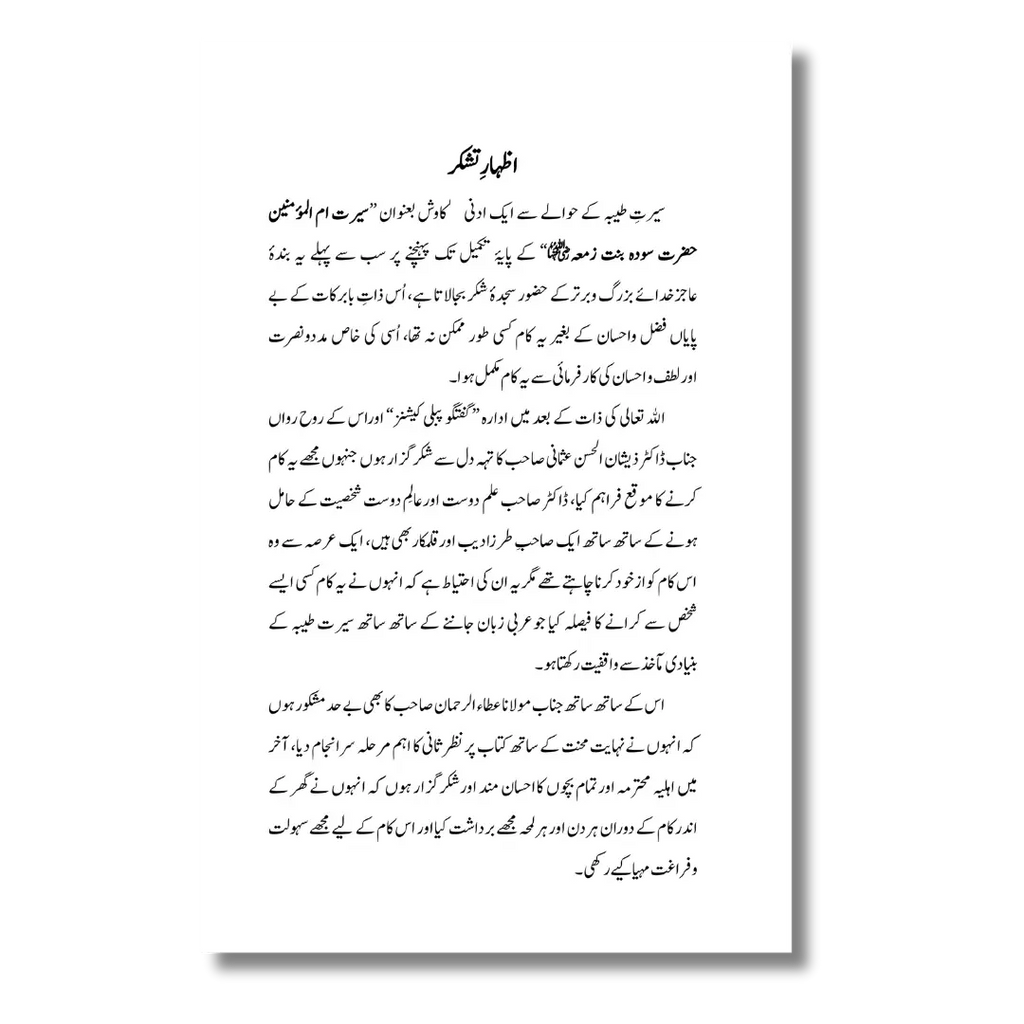 اظہارِ تشکر
سیرتِ طیبہ کے حوالے سے ایک ادنیٰ کاوش بعنوان ”سیرت ام المؤمنین
حضرت سودہ بنت زمعہ رضی اللہ عنہا“ کے پایۂ تکمیل تک پہنچنے پر سب سے پہلے یہ بندۂ
عاجز خدائے بزرگ وبرتر کے حضور سجدۂ شکر بجالاتا ہے، اُس ذاتِ بابرکات کے بے
پایاں فضل واحسان کے بغیر یہ کام کسی طور ممکن نہ تھا، اُسی کی خاص مددونصرت
اور لطف واحسان کی کارفرمائی سے یہ کام مکمل ہوا۔
اللہ تعالی کی ذات کے بعد میں ادارہ ”گفتگو پبلی کیشنز“ اور اس کے روح رواں
جناب ڈاکٹر ذیشان الحسن عثمانی صاحب کا تہہ دل سے شکر گزار ہوں جنہوں مجھے یہ کام
کرنے کا موقع فراہم کیا، ڈاکٹر صاحب علم دوست اور عالِم دوست شخصیت کے حامل
ہونے کے ساتھ ساتھ ایک صاحبِ طرز ادیب اور قلمکار بھی ہیں، ایک عرصہ سے وہ
اس کام کو از خود کرنا چاہتے تھے مگر یہ ان کی احتیاط ہے کہ انہوں نے یہ کام کسی ایسے
شخص سے کرانے کا فیصلہ کیا جو عربی زبان جاننے کے ساتھ ساتھ سیرت طیبہ کے
بنیادی مآخذ سے واقفیت رکھتا ہو۔
اس کے ساتھ ساتھ جناب مولانا عطاء الرحمان صاحب کا بھی بے حد مشکور ہوں
کہ انہوں نے نہایت محنت کے ساتھ کتاب پر نظر ثانی کا اہم مرحلہ سرانجام دیا، آخر
میں اہلیہ محترمہ اور تمام بچوں کا احسان مند اور شکر گزار ہوں کہ انہوں نے گھر کے
اندر کام کے دوران ہر دن اور ہر لمحہ مجھے برداشت کیا اور اس کام کے لیے مجھے سہولت
وفراغت مہیا کیے رکھی۔